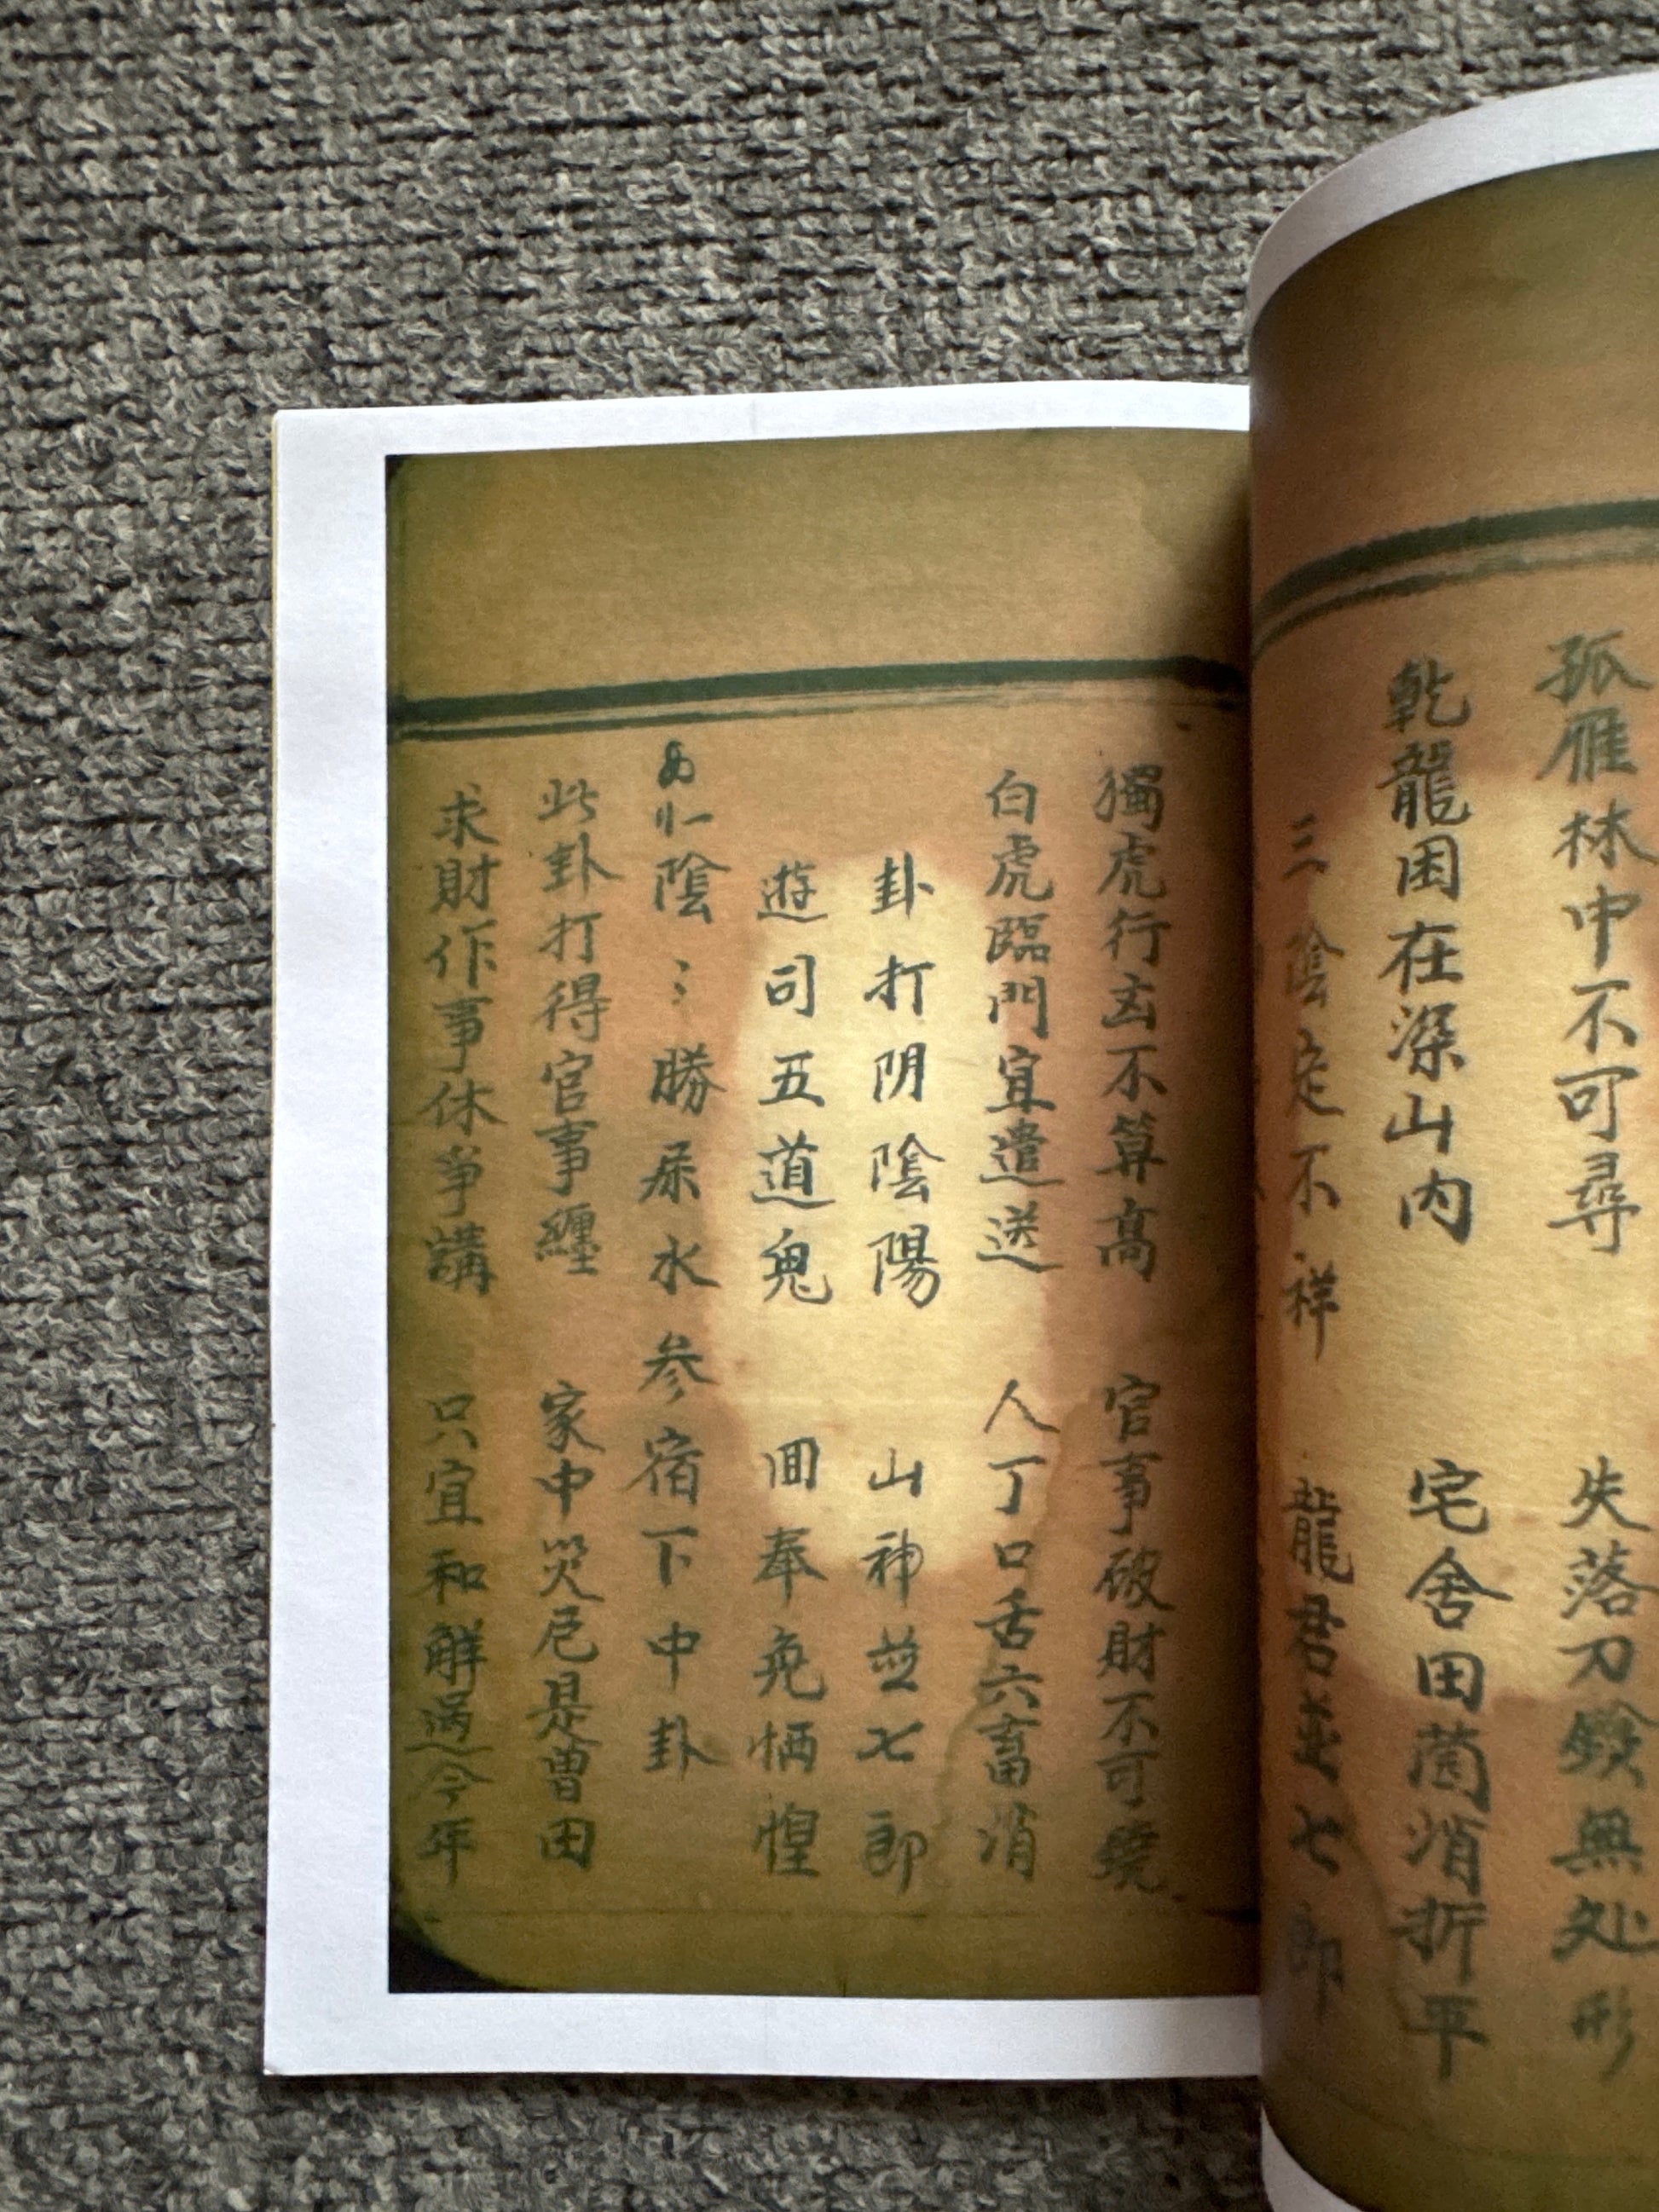 孤雁林中不可尋 失落刀鎗無处形
乾龍困在深山内 宅舍田蚕消折平
三陰定不祥 龍君並七郎
獨虎行玄不算高 官事破財不可繞
白虎臨門宜遣送 人丁口舌六畜消
卦打阴陰陽 山神並七郎
遊司五道鬼 回奉免恓惶
陰〻勝尿水 参宿下中卦
此卦打得官事纏 家中災厄是曹田
求財作事休爭講 只宜和解過今年